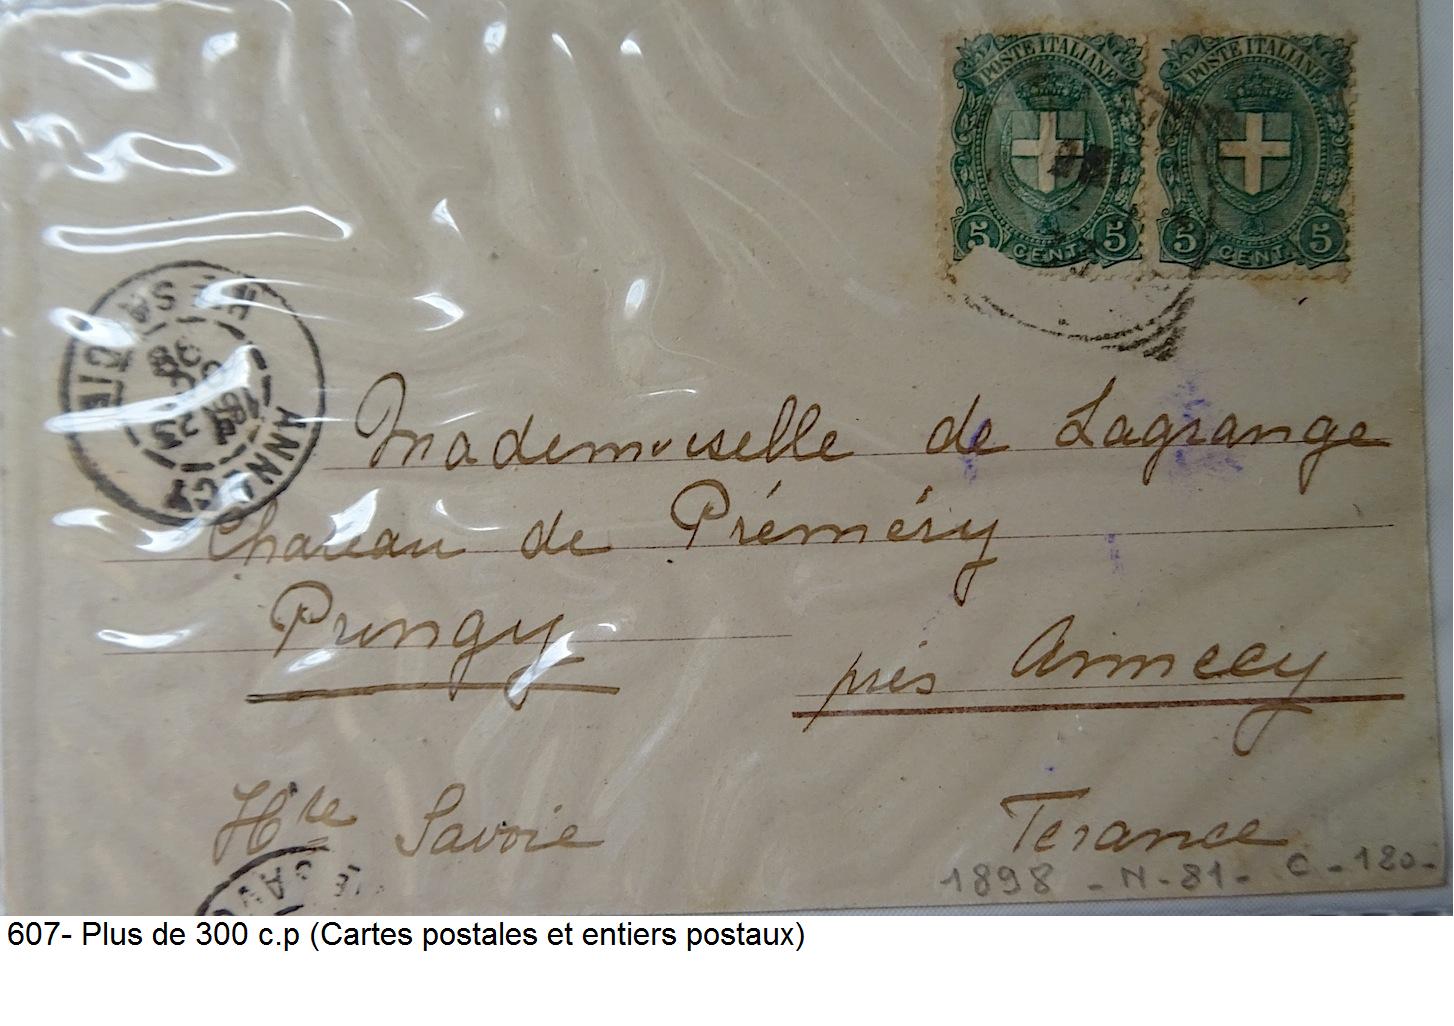 POSTE ITALIANE POSTE ITALIANE
5 CENT. 5 5 CENT. 5
ANNECY
Mademoiselle de Lagrange
Chateau de Préméry
Pringy
près Annecy
Hte Savoie
France
1898 - N - 81 - C - 180 -
607- Plus de 300 c.p (Cartes postales et entiers postaux)